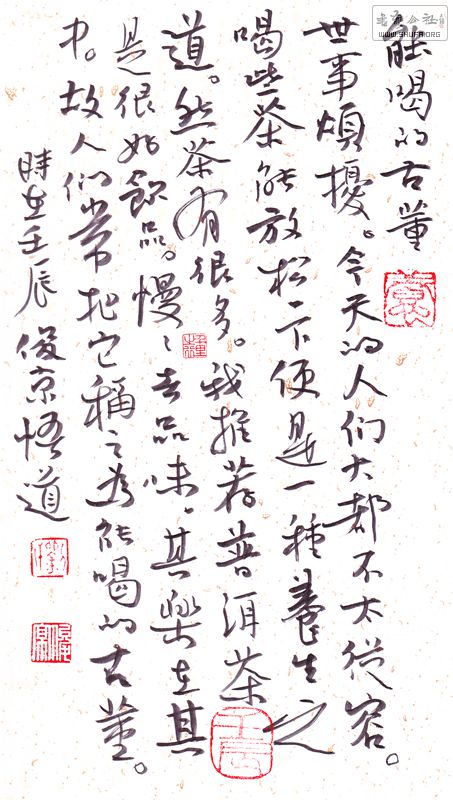 能喝的古董
世事煩擾。今天的人们大都不太從容。
喝些茶能放松一下便是一種養生之
道。然茶有很多。我推荐普洱茶
是很好飲品。慢〻去品味。其樂在其
中。故人们常把它稱之为能喝的古董。
時在壬辰俊京悟道
壬辰
公社
WWW.SHUFA.ORG